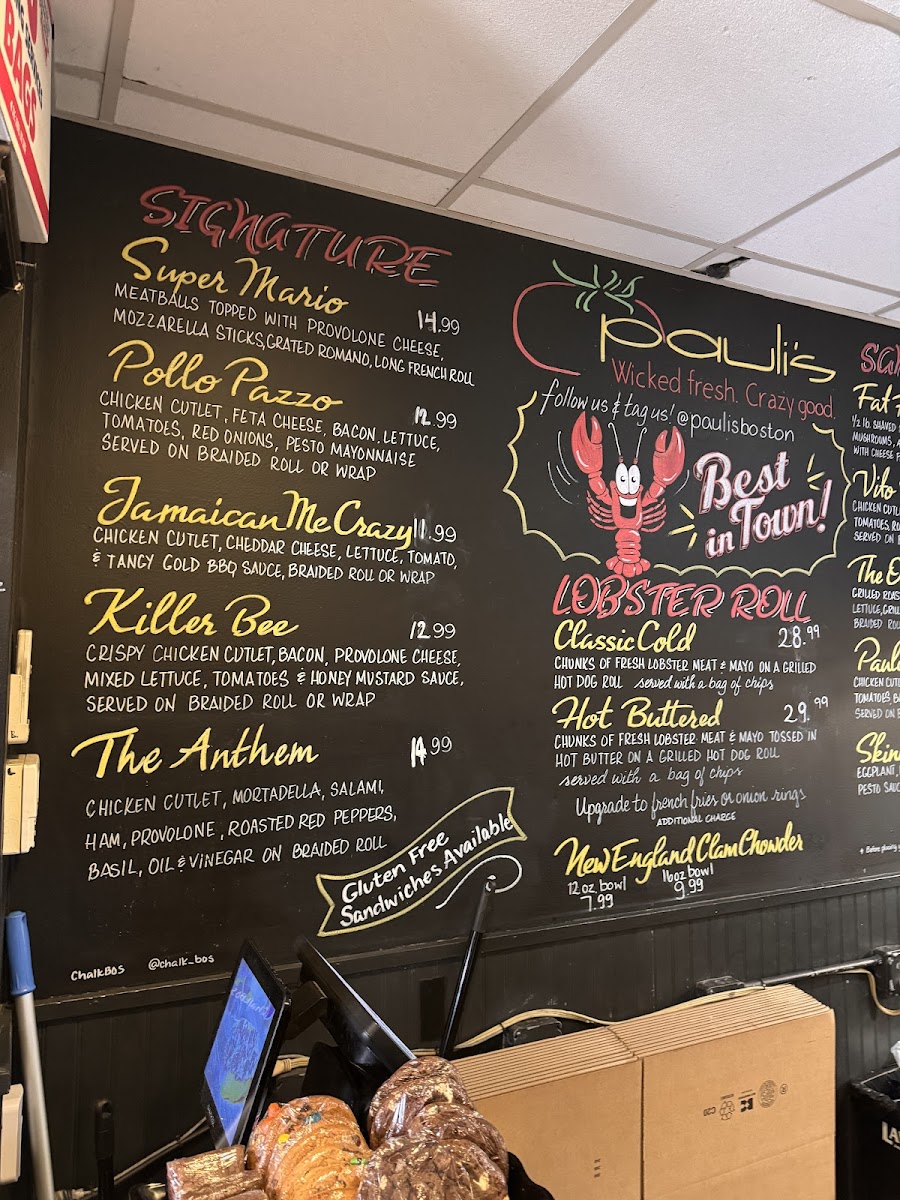 BAGS
SIGNATURE
Super Mario 14.99
MEATBALLS TOPPED WITH PROVOLONE CHEESE,
MOZZARELLA STICKS, GRATED ROMANO, LONG FRENCH ROLL
Pollo Pazzo 12.99
CHICKEN CUTLET, FETA CHEESE, BACON, LETTUCE,
TOMATOES, RED ONIONS, PESTO MAYONNAISE
SERVED ON BRAIDED ROLL OR WRAP
Jamaican Me Crazy 11.99
CHICKEN CUTLET, CHEDDAR CHEESE, LETTUCE, TOMATO,
& TANGY GOLD BBQ SAUCE, BRAIDED ROLL OR WRAP
Killer Bee 12.99
CRISPY CHICKEN CUTLET, BACON, PROVOLONE CHEESE,
MIXED LETTUCE, TOMATOES & HONEY MUSTARD SAUCE,
SERVED ON BRAIDED ROLL OR WRAP
The Anthem 14.99
CHICKEN CUTLET, MORTADELLA, SALAMI,
HAM, PROVOLONE, ROASTED RED PEPPERS,
BASIL, OIL & VINEGAR ON BRAIDED ROLL
Gluten Free
Sandwiches Available
ChalkBos @chalk_bos
pauli's
Wicked fresh. Crazy good.
follow us & tag us! @paulisboston
Best
in Town!
LOBSTER ROLL
Classic Cold 28.99
CHUNKS OF FRESH LOBSTER MEAT & MAYO ON A GRILLED
HOT DOG ROLL served with a bag of chips
Hot Buttered 29.99
CHUNKS OF FRESH LOBSTER MEAT & MAYO TOSSED IN
HOT BUTTER ON A GRILLED HOT DOG ROLL
served with a bag of chips
Upgrade to french fries or onion rings
ADDITIONAL CHARGE
New England Clam Chowder
12oz bowl 16oz bowl
7.99 9.99
Fat
1/2 lb. SHAVED
MUSHROOMS,
WITH CHEESE
Vito
CHICKEN CUTL
TOMATOES,
SERVED ON
The
GRILLED ROAS
LETTUCE, GRILL
BRAIDED ROLL
Paul
CHICKEN CUTL
TOMATOES,
SERVED ON
Skin
EGGPLANT,
PESTO SAUC
Before placing